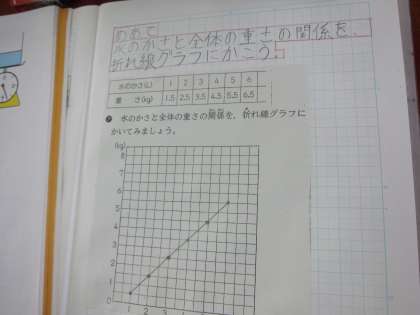 めあて
水のかさと全体の重さの関係を、
折れ線グラフにかこう。
水のかさ(L) 1 2 3 4 5 6
重さ(kg) 1.5 2.5 3.5 4.5 5.5 6.5
水のかさと全体の重さの関係を、折れ線グラフに
かいてみましょう。
(kg)
8
7
6
5
4
3
2
1
0 1 2 3